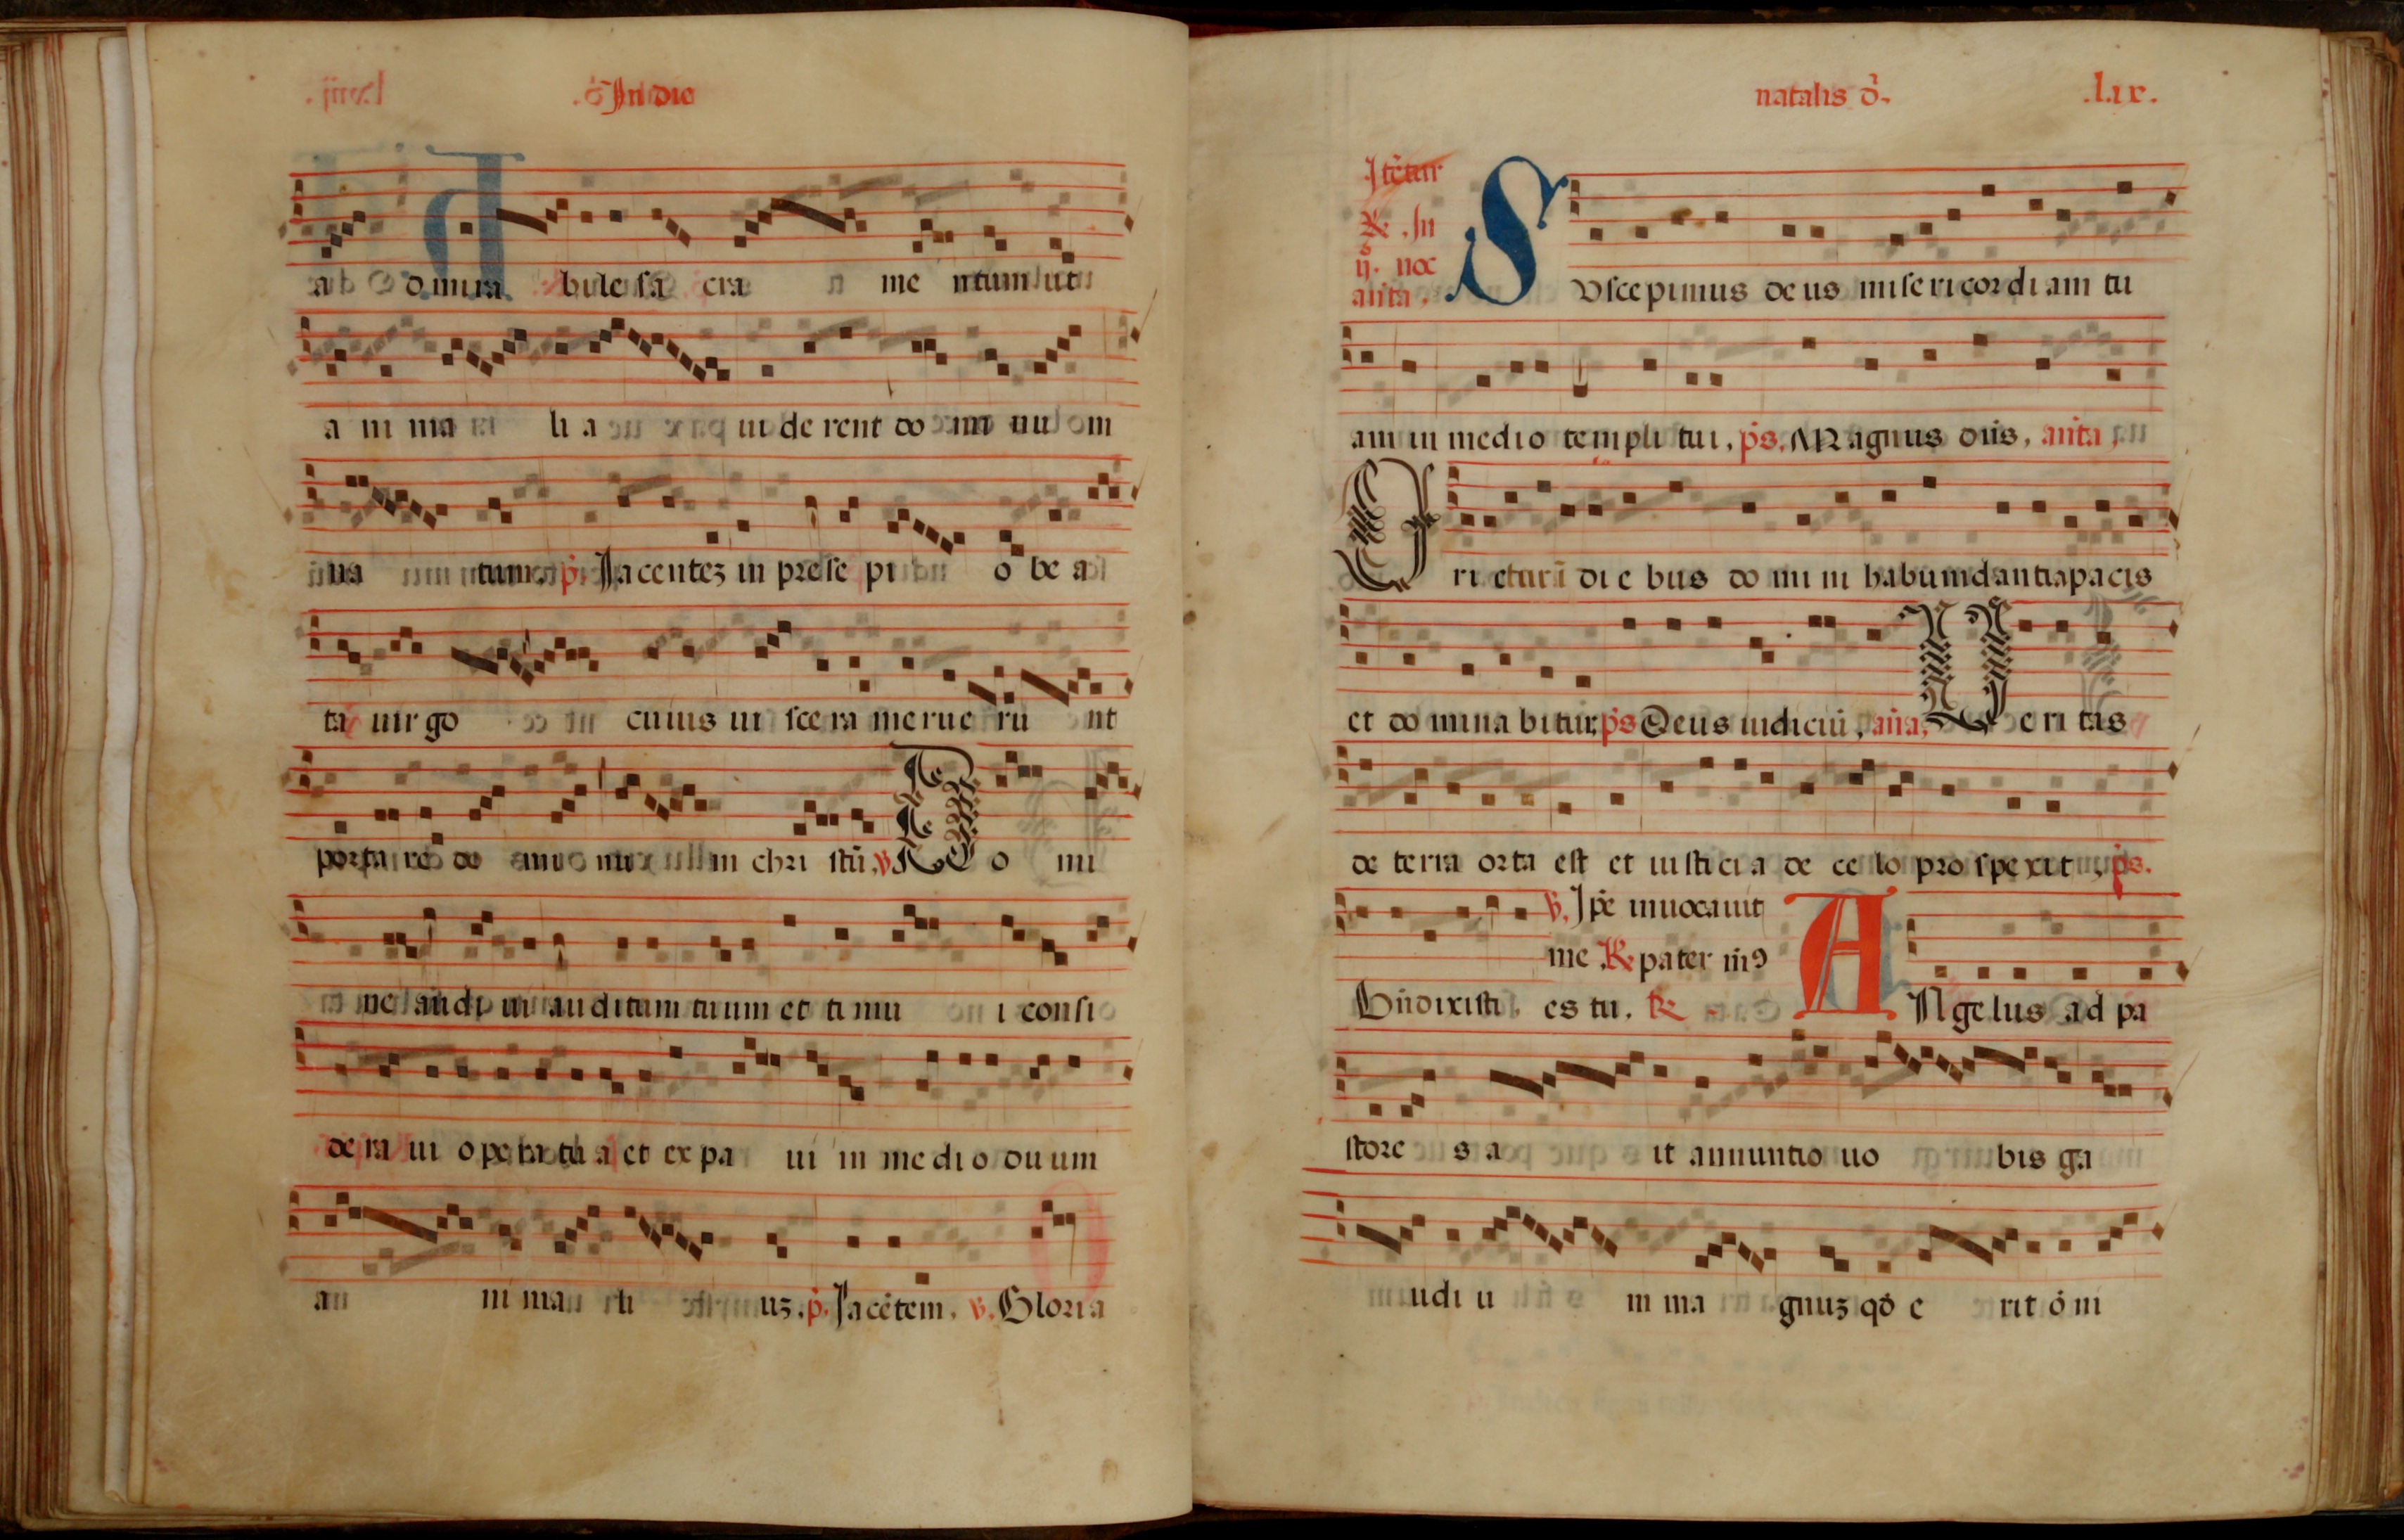 In die
admirabile sacramentum ut
animalia uiderent dominum
natum. p̄. Jacentez in presepio bea
ta uirgo cuius uiscera meruerunt
portare dominum christū. ℣. Domi
ne audiui auditum tuum et timui consi
deraui opera tua et expaui in medio duum
animaliuz. p̄. Jacētem. ℣. Gloria
natalis d̄. .lix.
Itētur
℟. In
ij. noc
an̄ta.
Suscepimus deus misericordiam tu
am in medio templi tui. p̄s. Magnus dn̄s. an̄ta.
Orietur ī diebus domini habundantia pacis
et dominabitur. p̄s Deus iudiciū. an̄a. Ueritas
de terra orta est et iusticia de celo prospexit. p̄s.
℣. Ip̄e inuocauit
me ℟. pater m̄9
Bn̄dixisti. es tu. ℟.
Angelus ad pa
stores ait annuntio uobis ga
udium magnuz qd̄ erit ōni